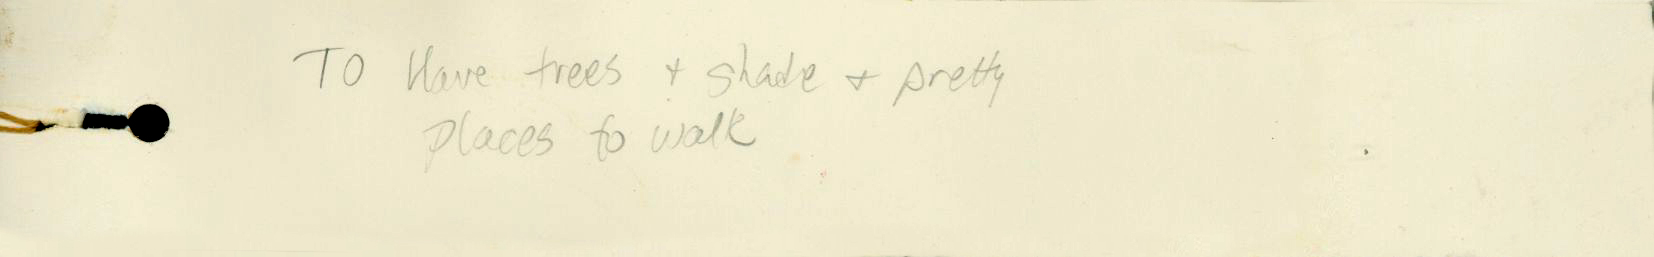 TO Have trees + shade + pretty
places to walk